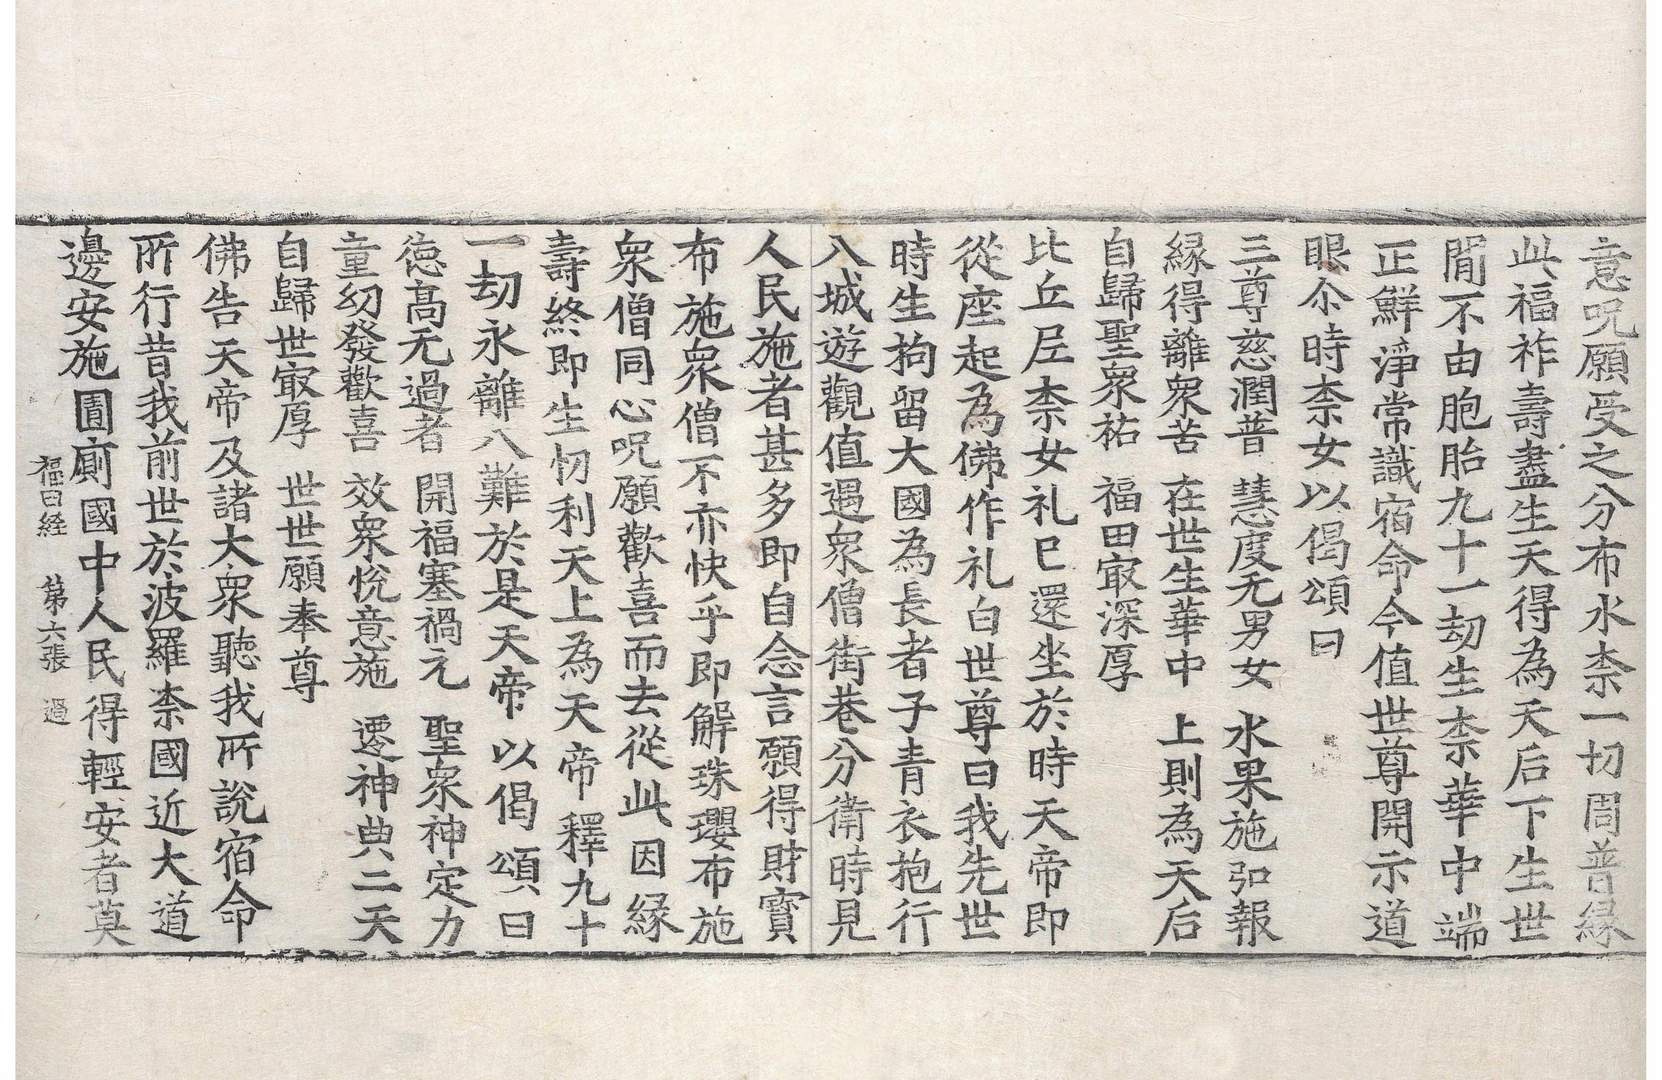 意呪願受之分布水柰一切周普緣
此福祚壽盡生天得為天后下生世
閒不由胞胎九十一劫生柰華中端
正鮮淨常識宿命今值世尊開示道
眼尒時柰女以偈頌曰
三尊慈潤普　慧度无男女　水果施弘報
緣得離衆苦　在世生華中　上則為天后
自歸聖衆祐　福田㝡深厚
比丘尼柰女礼已還坐於時天帝即
從座起為佛作礼白世尊曰我先世
時生拘留大國為長者子青衣抱行
入城遊觀值遇衆僧街巷分衛時見
人民施者甚多即自念言願得財寶
布施衆僧不亦快乎即解珠瓔布施
衆僧同心呪願歡喜而去從此因緣
壽終即生忉利天上為天帝釋九十
一劫永離八難於是天帝以偈頌曰
德高无過者　開福塞禍元　聖衆神定力
童幼發歡喜　效衆悅意施　遷神典二天
自歸世㝡厚　世世願奉尊
佛告天帝及諸大衆聽我所說宿命
所行昔我前世於波羅柰國近大道
邊安施圊廁國中人民得輕安者莫
福田経　第六張　過